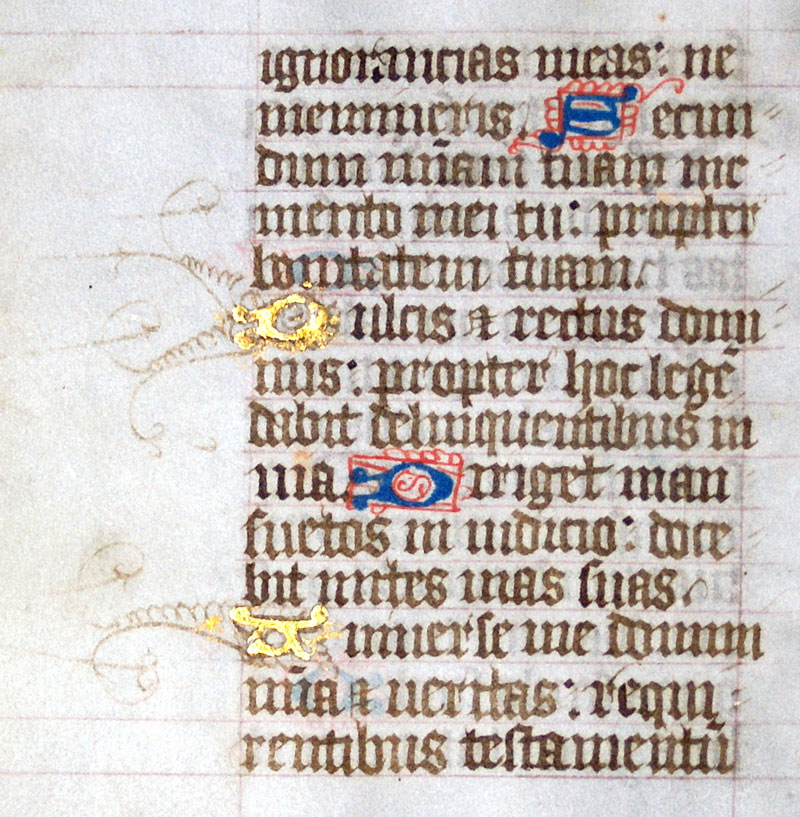 ignorancias meas: ne
memineris. Secun
dum mīam tuam me
mento mei tu: propter
bonitatem tuam.
Dulcis & rectus domi
nus: propter hoc legē
dabit delinquentibus in
uia. Diriget man
suetos in iudicio: doce
bit mites uias suas.
Uniuerse uie domini
mīa & ueritas: requi
rentibus testamentū